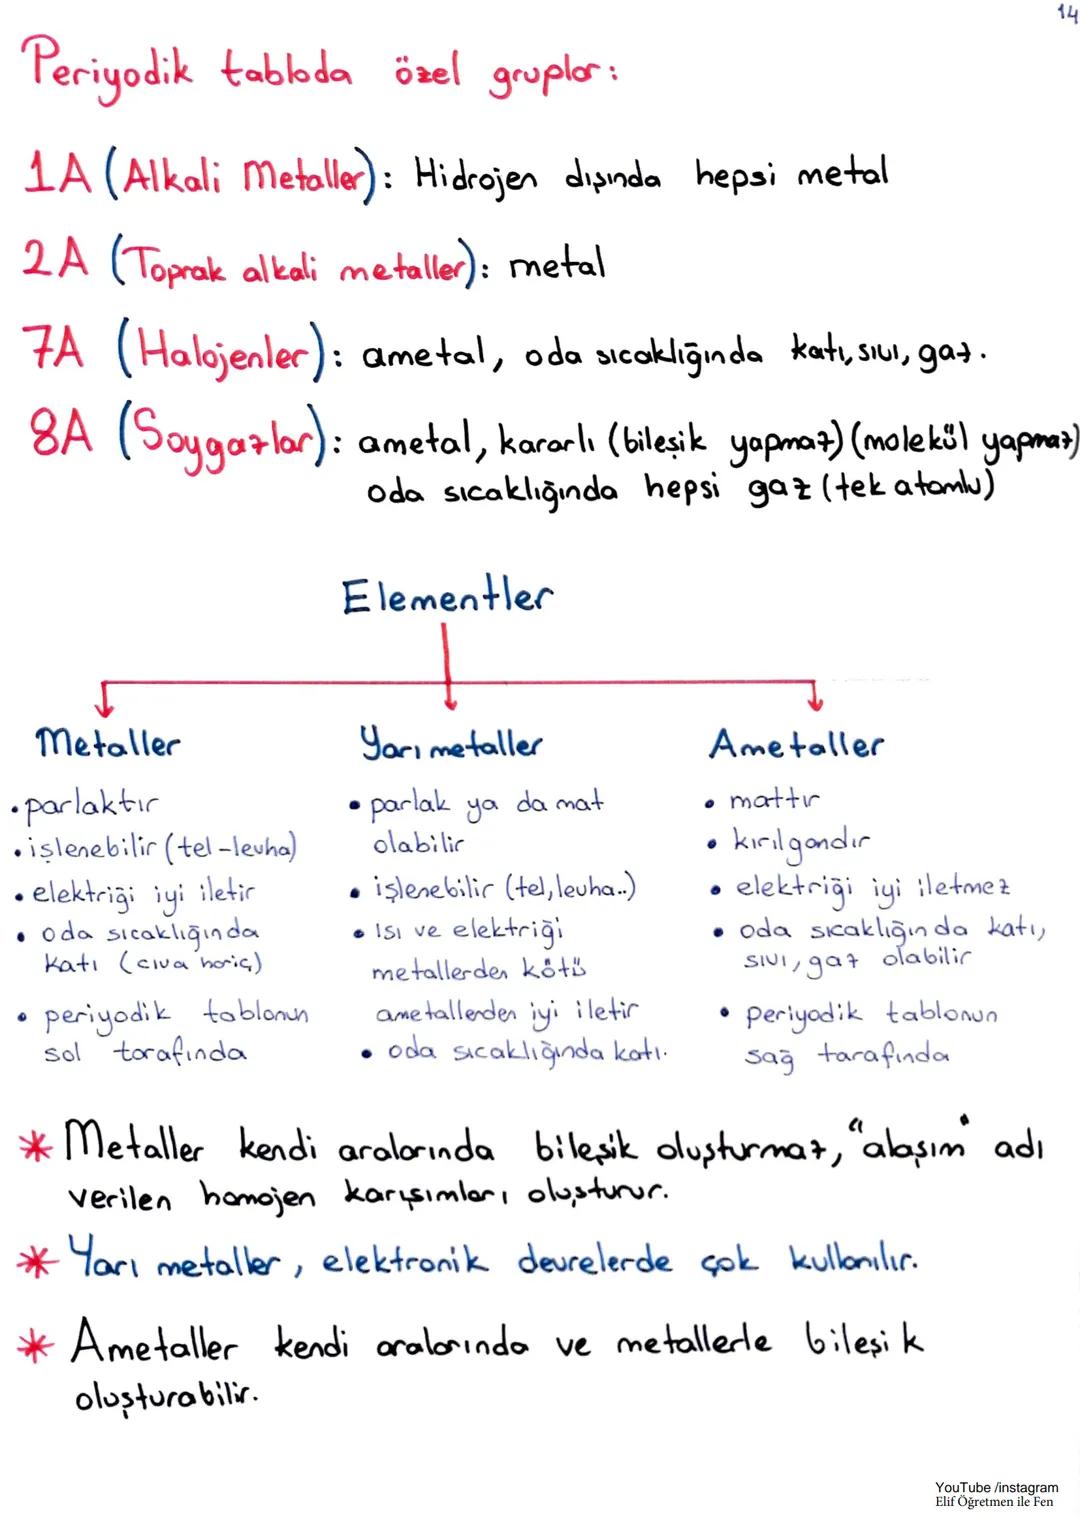 14
Periyodik tabloda özel gruplar:
1A (Alkali Metaller): Hidrojen dışında hepsi metal
2A (Toprak alkali metaller): metal
7A (Halojenler): ametal, oda sıcaklığında katı, sıvı, gaz.
8A (Soygazlar): ametal, kararlı (bileşik yapmaz) (molekül yapmaz)
oda sıcaklığında hepsi gaz (tek atomlu)
Elementler
Metaller
• parlaktır
• işlenebilir (tel-levha)
• elektriği iyi iletir
• oda sıcaklığında
katı (cıva hariç)
• periyodik tablonun
sol tarafında
Yarı metaller
• parlak ya da mat
olabilir
• işlenebilir (tel, levha..)
• ısı ve elektriği
metallerden kötü
ametallerden iyi iletir
• oda sıcaklığında katı.
Ametaller
• mattır
• kırılgandır
• elektriği iyi iletmez
• oda sıcaklığında katı,
sıvı, gaz olabilir
• periyodik tablonun
sağ tarafında
* Metaller kendi aralarında bileşik oluşturmaz, "alaşım" adı
verilen homojen karışımları oluşturur.
* Yarı metaller, elektronik devrelerde çok kullanılır.
* Ametaller kendi aralarında ve metallerle bileşik
oluşturabilir.
YouTube /instagram
Elif Öğretmen ile Fen